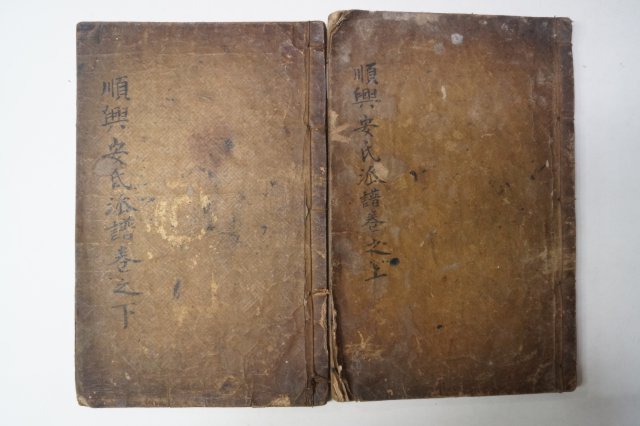 順興安氏派譜卷之上
順興安氏派譜卷之下